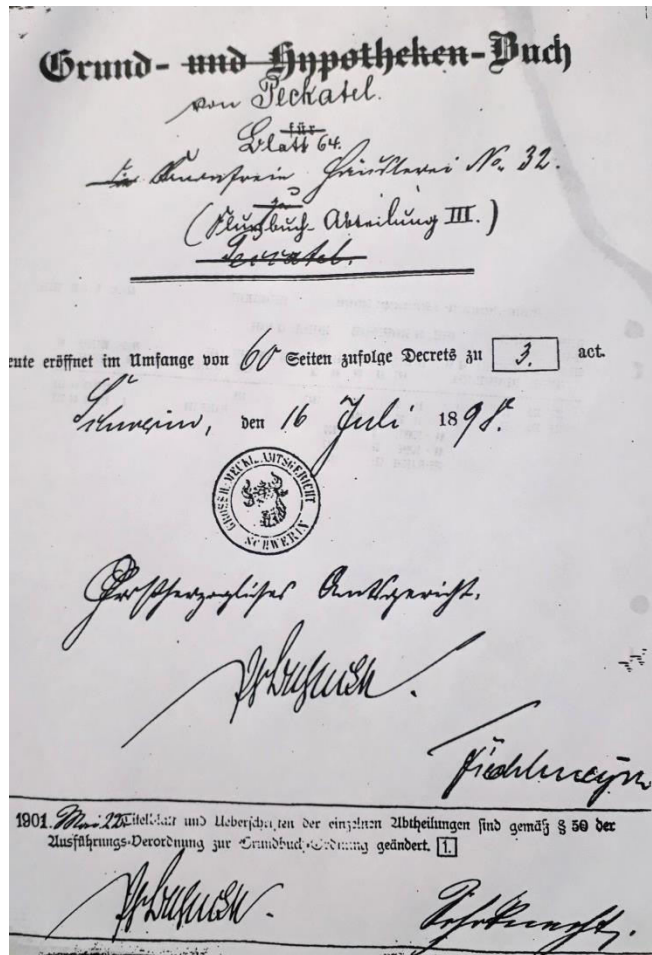 Grund- und Hypotheken-Buch
von Peckatel.
für
Blatt 64.
die Häuslerei No. 32.
zu
(Flurbuch Abteilung III.)
Peckatel.
eute eröffnet im Umfange von 60 Seiten zufolge Decrets zu 3. act.
Schwerin, den 16 Juli 1898.
GROSSH. MECKL. AMTSGERICHT
SCHWERIN
Großherzogliches Amtsgericht.
1901. Mai 22. Titelblatt und Ueberschriften der einzelnen Abtheilungen sind gemäß § 50 der
Ausführungs-Verordnung zur Grundbuch-Ordnung geändert. 1.